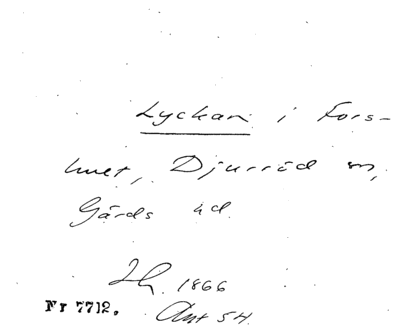 Lyckan i Fors-
huset, Djurröd sn,
Gärds hd.
1866
Nr 7712. Ant 54.